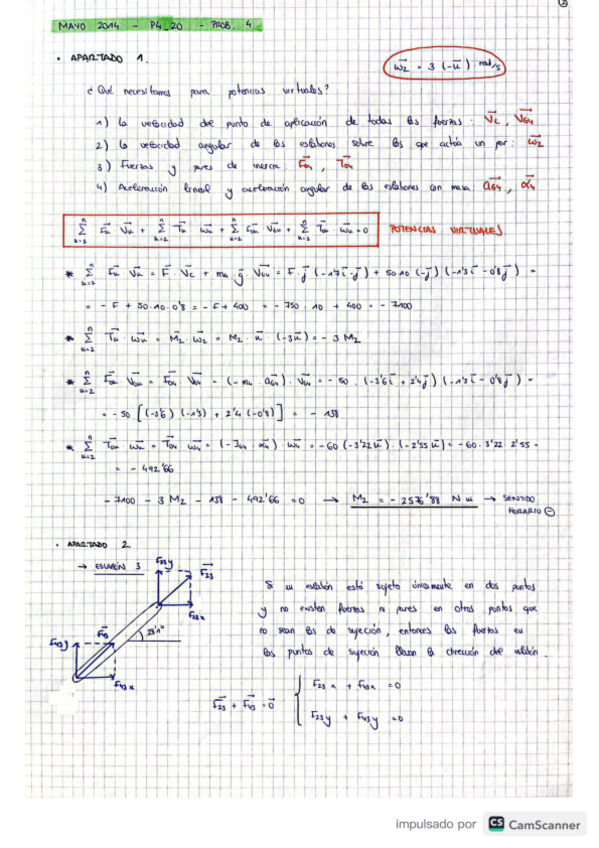 ②
MAYO 2014 - P4_20 - PROB. 4
• APARTADO 1.
ω₂ = 3 (-u) rad/s
¿ Qué necesitamos para potencias virtuales?
1) La velocidad del punto de aplicación de todas las fuerzas: Vc, VG4
2) La velocidad angular de los eslabones sobre los que actúa un par: ω₂
3) Fuerzas y pares de inercia: Fo4, To4
4) Aceleración lineal y aceleración angular de los eslabones con masa: aG4, α4
∑ Fk Vk + ∑ Tk ωk + ∑ Fok VGk + ∑ Tok ωk = 0 POTENCIAS VIRTUALES
* ∑ Fk Vk = F · Vc + m4 · g · VG4 = F · j (-1'7i - j) + 50·10 (-j) (-1'3i - 0'8j) =
= - F + 50·10·0'8 = - F + 400 = - 750 · 10 + 400 = - 7100
* ∑ Tk · ωk = M2 · ω2 = M2 · u · (-3u) = - 3 M2
* ∑ Fok VGk = Fo4 VG4 = (-m4 · aG4) · VG4 = - 50 · (-3'6i + 2'4j) (-1'3i - 0'8j) =
= - 50 [(-3'6) (-1'3) + 2'4 (-0'8)] = - 138
* ∑ Tok ωk = To4 ω4 = (-JG4 α4) · ω4 = - 60 (-3'22u) · (-2'55u) = - 60 · 3'22 · 2'55 =
= - 492'66
- 7100 - 3 M2 - 138 - 492'66 = 0 → M2 = - 2576'88 N m → SENTIDO
HORARIO ⊖
• APARTADO 2.
→ ESLABÓN 3
F23y
F23
F23x
F43y
F43
F43x
23'1°
Si un eslabón está sujeto únicamente en dos puntos
y no existen fuerzas ni pares en otros puntos que
no sean los de sujeción, entonces las fuerzas en
los puntos de sujeción llevan la dirección del eslabón.
F23 + F43 = 0
F23x + F43x = 0
F23y + F43y = 0
impulsado por CS CamScanner